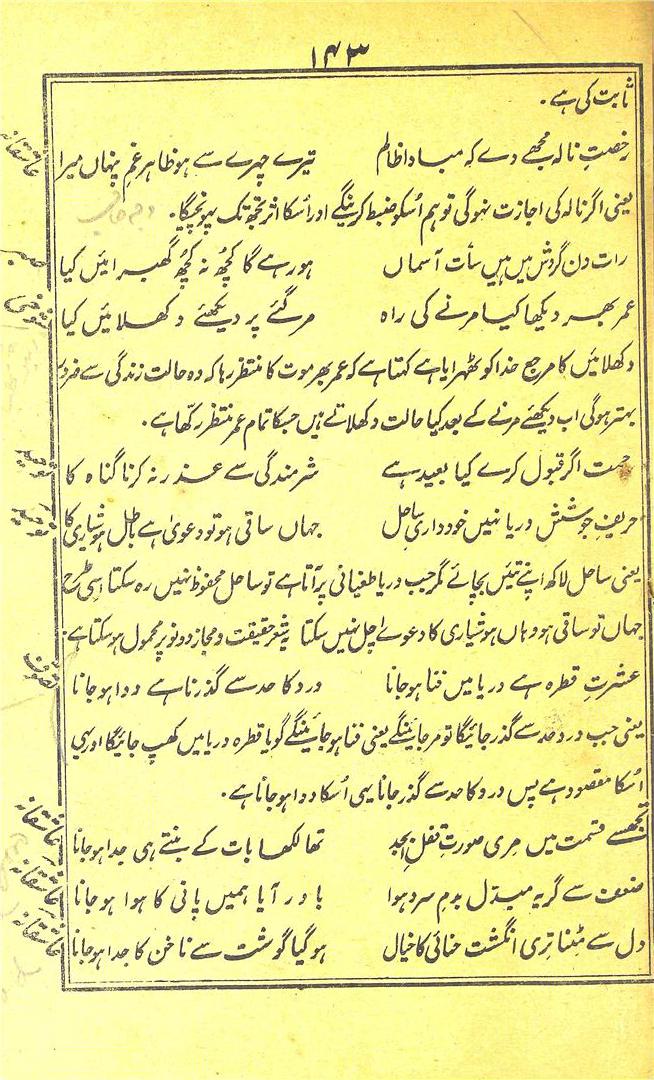 ۱۴۳
ثابت کی ہے۔
رخصتِ نالہ مجھے دے کہ مبادا ظالم تیرے چہرے سے ہو ظاہر غمِ پنہاں میرا
عاشقانہ
یعنی اگر نالہ کی اجازت نہوگی تو ہم اُسکو ضبط کرینگے اور اُسکا اثر تجھ تک پہونچیگا۔
رات دن گردش میں ہیں سات آسماں ہو رہے گا کچھ نہ کچھ گھبرائیں کیا
صبر
عمر بھر دیکھا کیا مرنے کی راہ مر گئے پر دیکھئے دکھلائیں کیا
شوخی
دکھلائیں کا مرجع خدا کو ٹھہرایا ہے کہتا ہے کہ عمر بھر موت کا منتظر رہا کہ وہ حالت زندگی سے ضرور
بہتر ہوگی اب دیکھئے مرنے کے بعد کیا حالت دکھلاتے ہیں جسکا تمام عمر منتظر رکھا ہے۔
رحمت اگر قبول کرے کیا بعید ہے شرمندگی سے عذر نہ کرنا گناہ کا
توحید
حریفِ جوششِ دریا نہیں خودداریِ ساحل جہاں ساقی ہو تو دعویٰ ہے باطل ہوشیاری کا
توحید
یعنی ساحل لاکھ اپنے تئیں بچائے مگر جب دریا طغیانی پر آتا ہے تو ساحل محفوظ نہیں رہ سکتا اِسی طرح
جہاں تو ساقی ہو وہاں ہوشیاری کا دعوےٰ چل نہیں سکتا یہ شعر حقیقت و مجاز دونو پر محمول ہو سکتا ہے۔
عشرتِ قطرہ ہے دریا میں فنا ہو جانا درد کا حد سے گذرنا ہے دوا ہو جانا
تصوّف
یعنی جب درد حد سے گذر جائیگا تو مر جائینگے یعنی فنا ہو جائینگے گویا قطرہ دریا میں کھپ جائیگا اور یہی
اُسکا مقصود ہے پس درد کا حد سے گذر جانا یہی اُسکا دوا ہو جانا ہے۔
تجھسے قسمت میں مری صورتِ قفلِ ابجد تھا لکھا بات کے بنتے ہی جدا ہو جانا
عاشقانہ
ضعف سے گریہ مبدّل بدمِ سرد ہوا باور آیا ہمیں پانی کا ہوا ہو جانا
عاشقانہ
دل سے مٹنا تری انگشت حنائی کا خیال ہو گیا گوشت سے ناخن کا جدا ہو جانا
عاشقانہ